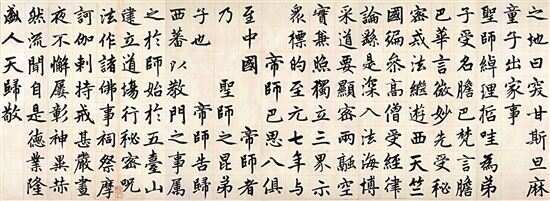 之地曰突甘斯旦麻
童子出家事
聖師綽理哲哇為弟
子受名膽巴梵言膽
巴華言微妙先受秘
密戒法繼遊西天竺
國遍參高僧受經律
論繇是深入法海博
采道要顯密兩融空
實兼照獨立三界示
衆標的至元七年與
帝師巴思八俱
至中國 帝師者
乃 聖師之昆弟
子也 帝師告歸
西蕃以教門之事屬
之於師始於五臺山
建立道場行秘密咒
法作諸佛事祠祭摩
訶伽剌持戒甚嚴晝
夜不懈屢彰神異赫
然流聞自是德業隆
盛人天歸敬